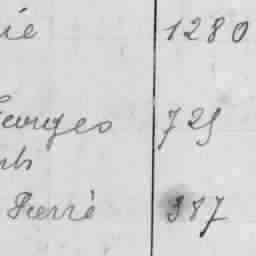 ie 1280
Georges 725
nts
Pierre 387